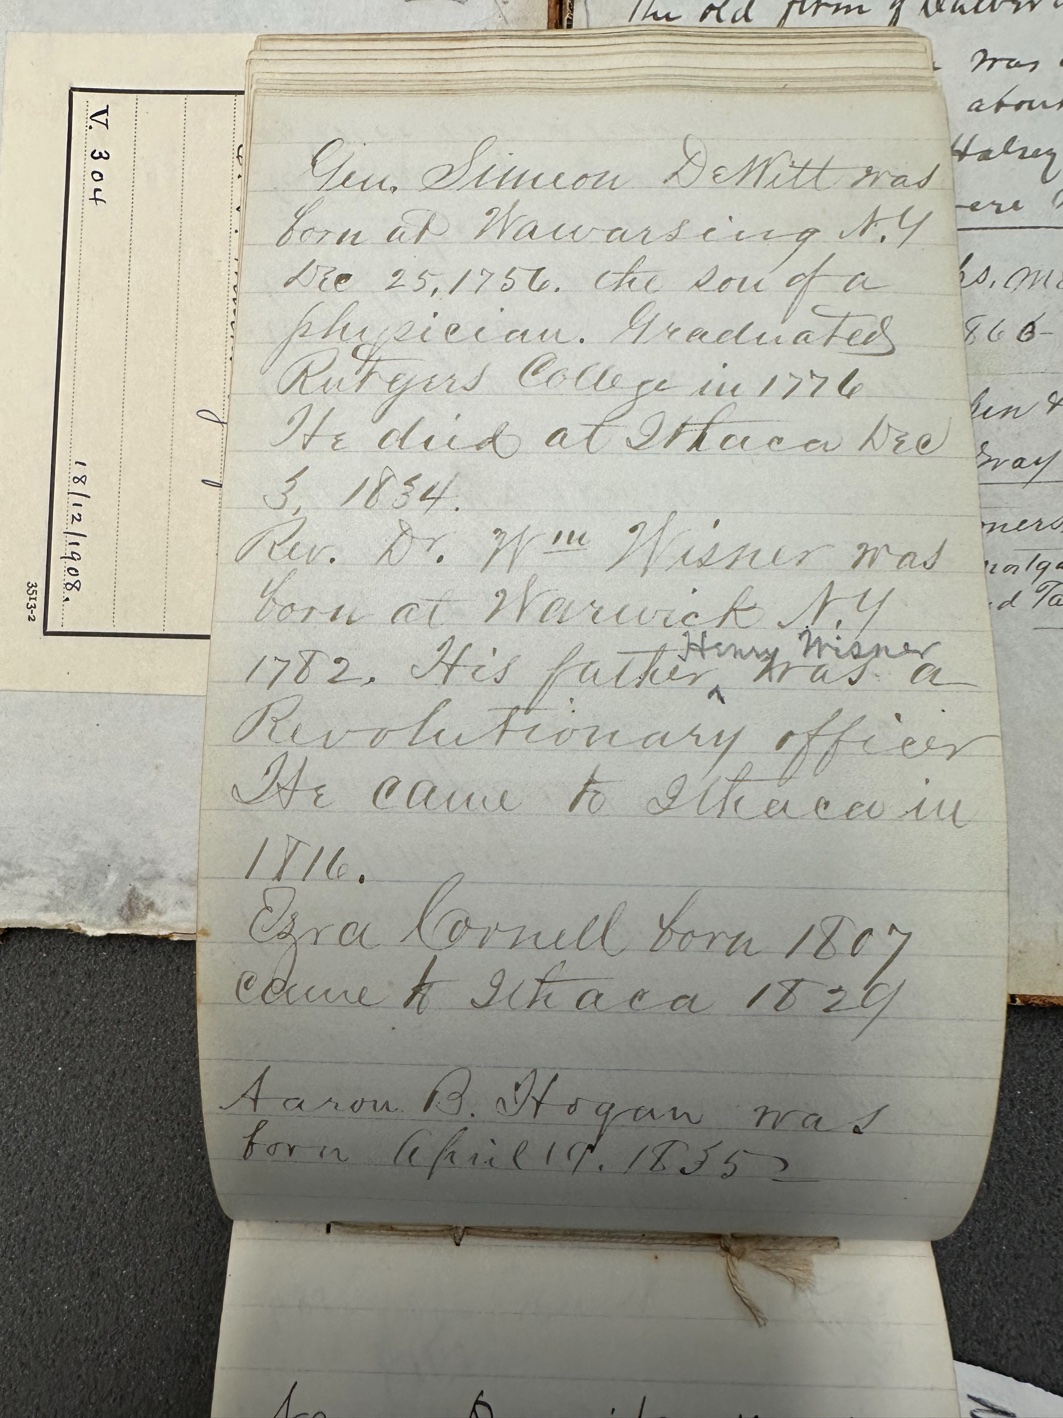 V. 304
18/12/1908.
3513-2
The old firm of
was
about
Halsey
ere
Gen. Simeon DeWitt was
born at Wawarsing N.Y
Dec 25, 1756. the son of a
physician. Graduated
Rutgers College in 1776
He died at Ithaca Dec
3, 1834.
Rev. Dr. Wm Wisner was
born at Warwick N.Y
Henry Wisner
1782. His father ‸ was a
Revolutionary officer
He came to Ithaca in
1816.
Ezra Cornell born 1807
came to Ithaca 1829
Aaron B. Hogan was
born April 19. 1835